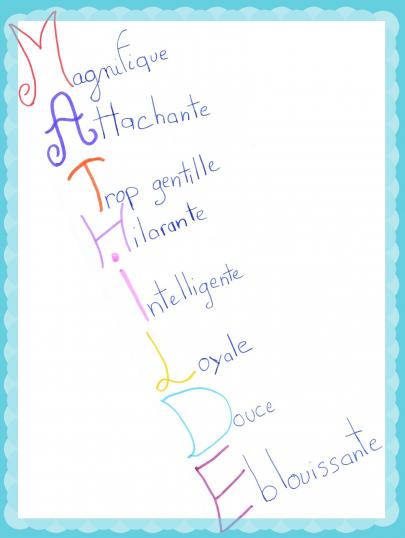 Magnifique
Attachante
Trop gentille
Hilarante
Intelligente
Loyale
Douce
Eblouissante